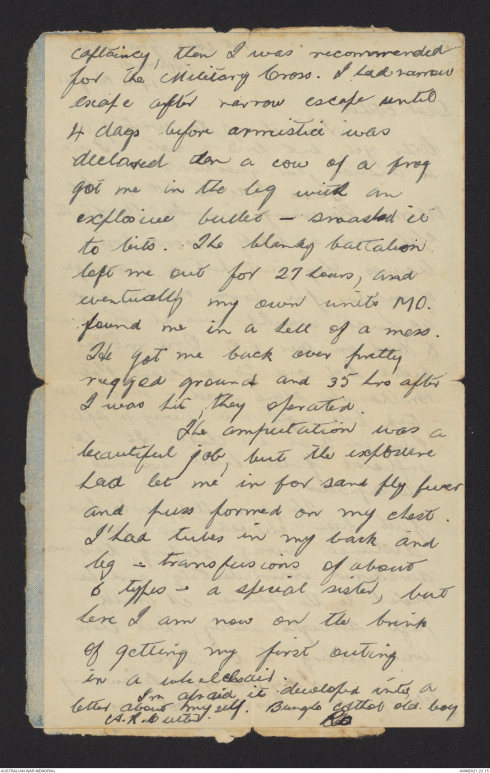 captaincy, then I was recommended
for the Military Cross. I had narrow
escape after narrow escape until
4 days before armistice was
declared then a cow of a frog
got me in the leg with an
explosive bullet – smashed it
to bits. The blanky battalion
left me out for 27 hours, and
eventually my own units MO.
found me in a hell of a mess.
He got me back over pretty
rugged ground and 35 hrs after
I was hit, they operated.
The amputation was a
beautiful job, but the exposure
had let me in for sand fly fever
and puss formed on my chest.
I'had tubes in my back and
leg – transfusions of about
6 types – a special sister, but
here I am now on the brink
of getting my first outing
in a wheelchair.
I'm afraid it developed into a
letter about myself. Bungho old boy
A.R. Cutler.
AUSTRALIAN WAR MEMORIAL
AWM2021.22.15